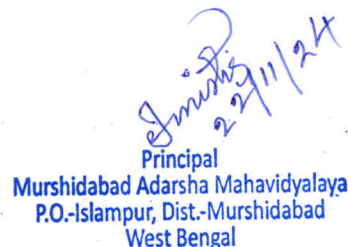 22/11/24
Principal
Murshidabad Adarsha Mahavidyalaya
P.O.-Islampur, Dist.-Murshidabad
West Bengal